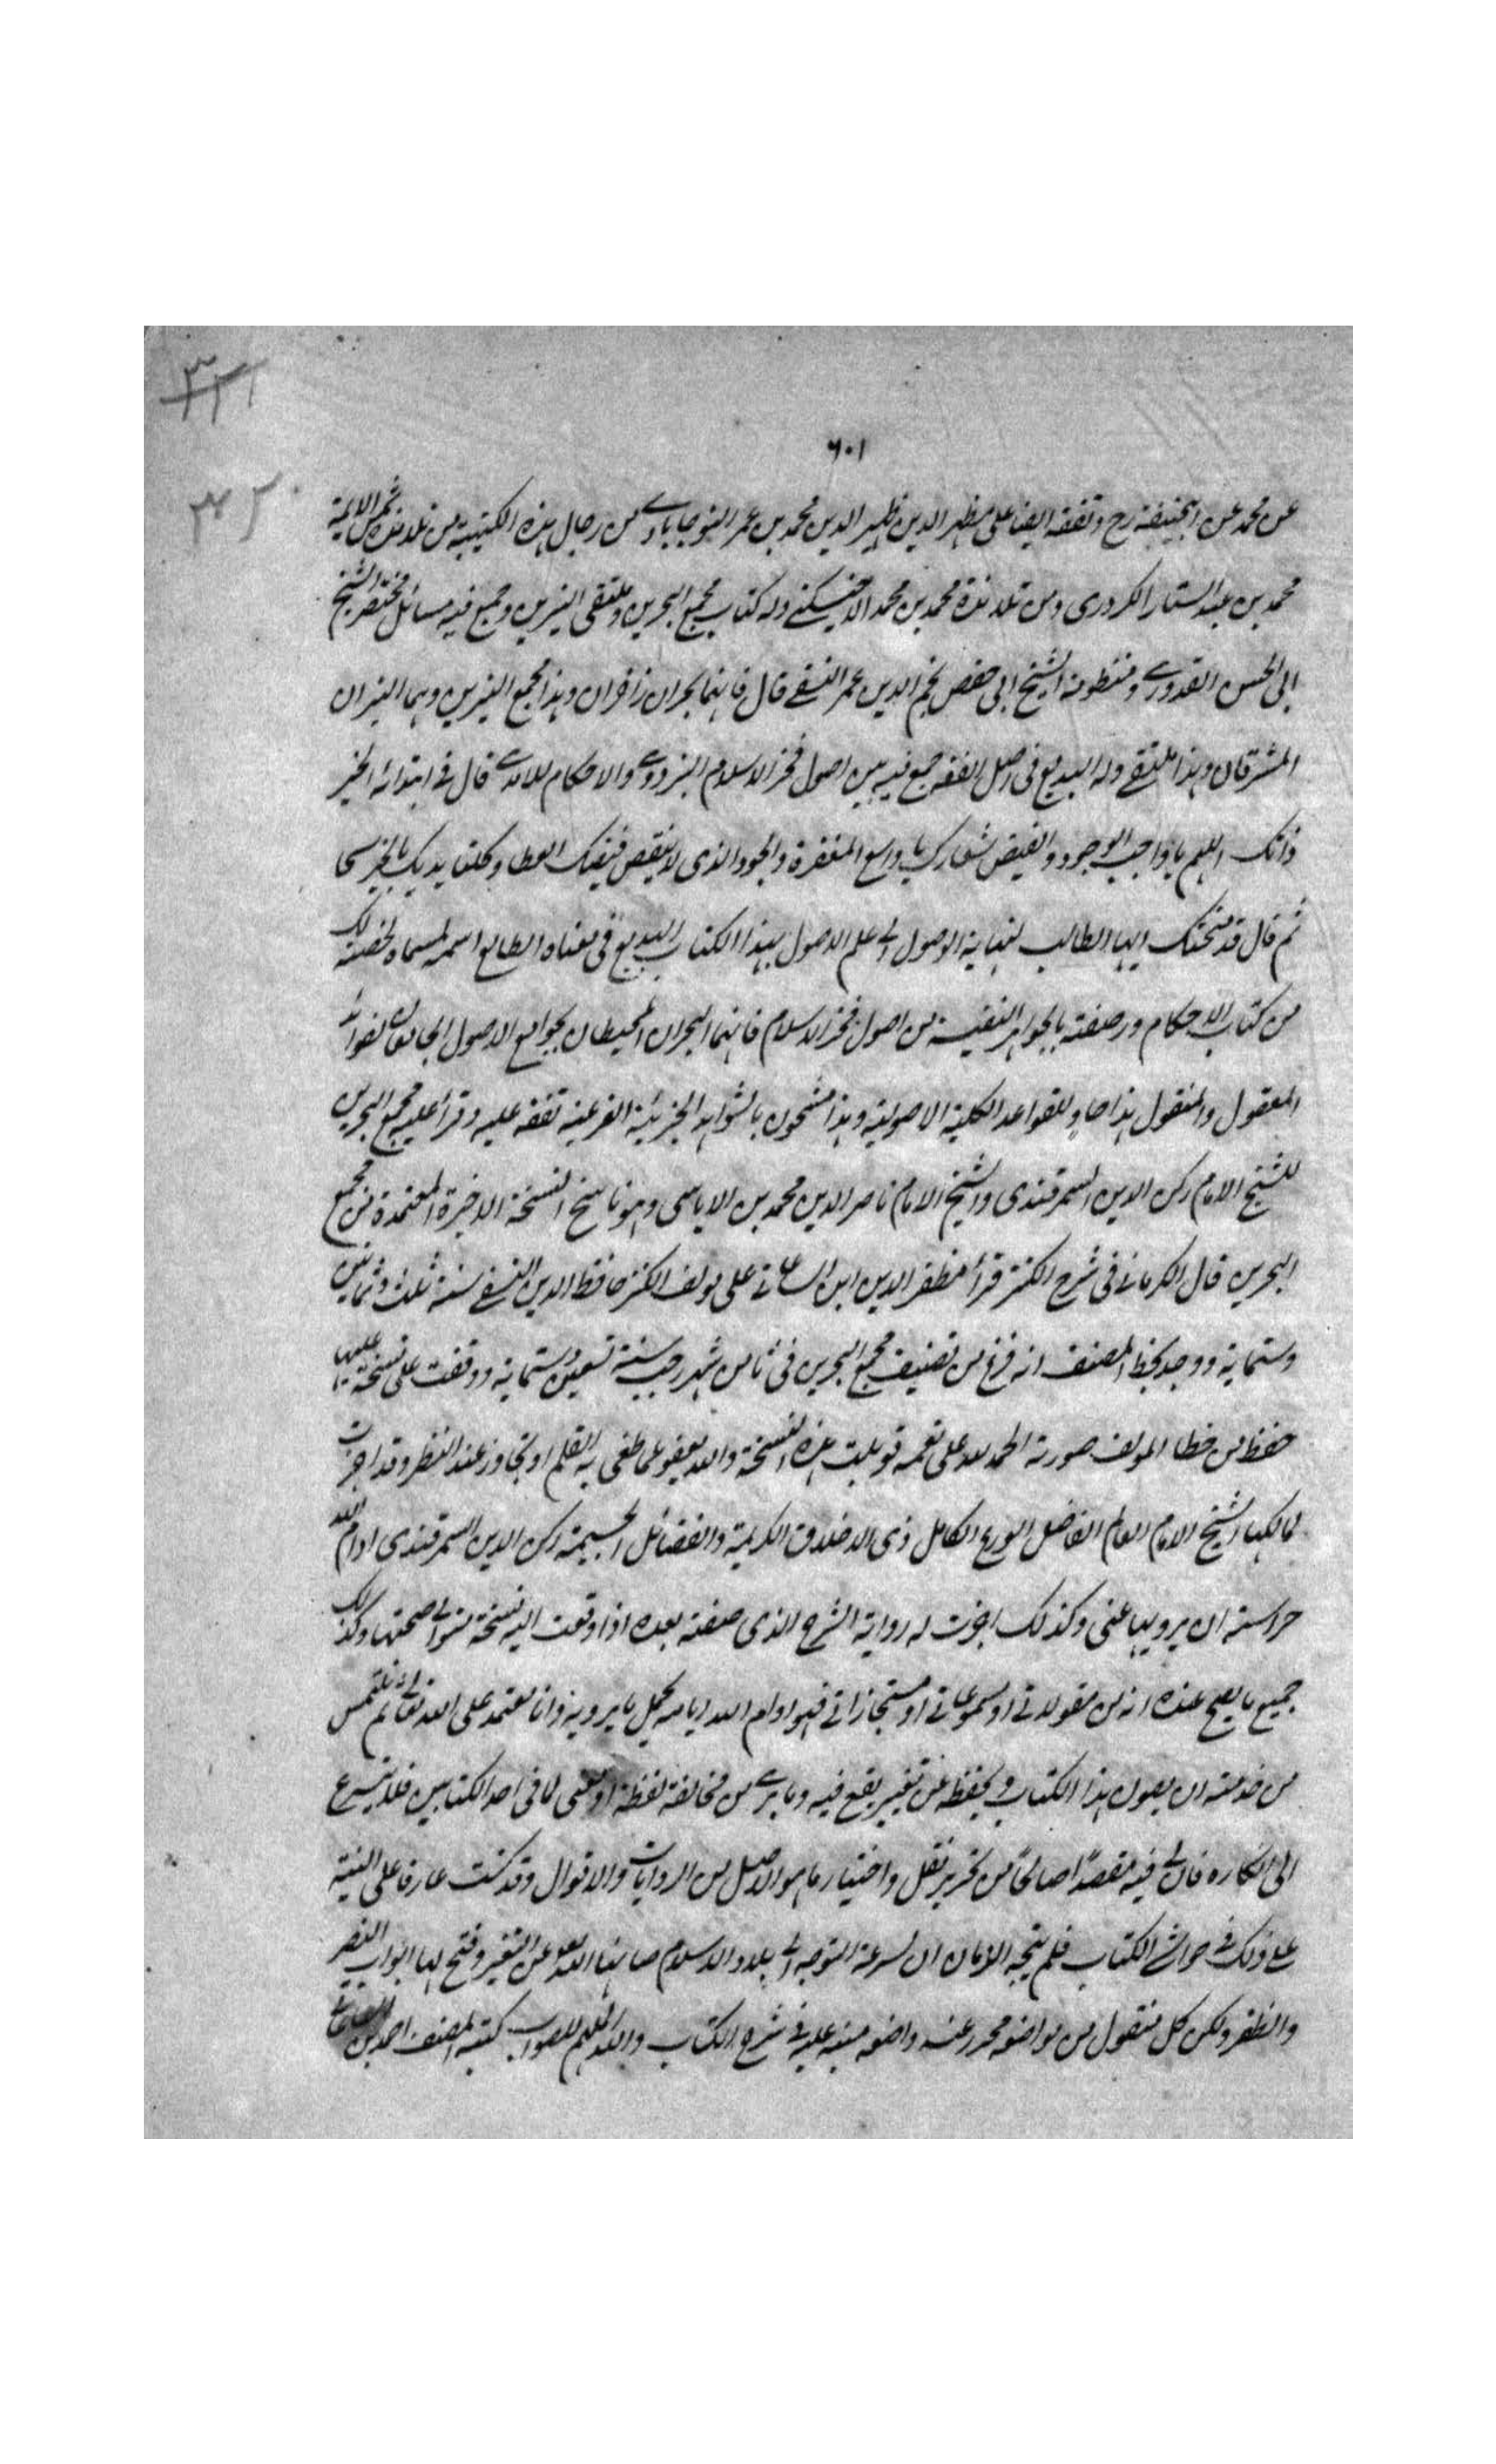 ٣٢١
٦٠١
٣٢٠
عن محمد عن ابيحنيفة رح وتفقه ايضا على مظهر الدين ظهير الدين محمد بن عمر النوجاباذي من رجال هذه الكتيبة من تلامذة شمس الائمة
محمد بن عبد الستار الكردرى ومن تلامذة محمد بن محمد الاخسيكثى وله كتاب مجمع البحرين وملتقى النيرين وجمع فيه مسائل مختصر الشيخ
ابى الحسن القدورى ومنظومة الشيخ ابى حفص نجم الدين عمر النسفى قال فانهما بحران زاخران وهذا مجمع النيرين وهما النيران
المشرقان وهذا ملتقى وله البديع فى اصول الفقه جمع فيه بين اصول فخر الاسلام البزدوى والاحكام للآمدى قال فى ابتدائه الخير
ذاتك اللهم يا واجب الوجود والفيض شعارك يا واسع المغفرة والجود الذى لا ينقص فيضك العطا وكلتا يديك بالخير سحا
ثم قال قد منحتك ايها الطالب لنهاية الوصول الى علم الاصول بهذا الكتاب البديع فى معناه الطابع اسمه لمسماه لخصته لك
من كتاب الاحكام ورصعته بالجواهر النفيسة من اصول فخر الاسلام فانهما البحران المحيطان بجوامع الاصول الجامعان لقواعد
المعقول والمنقول هذا حاو للقواعد الكلية الاصولية وهذا مشحون بالشواهد الجزئية الفرعية تفقه عليه وقرأ عليه مجمع البحرين
للشيخ الامام ركن الدين السمرقندى والشيخ الامام ناصر الدين محمد بن الاياسى وهو ناسخ النسخة الاخيرة المعتمدة من مجمع
البحرين قال الكرمانى فى شرح الكنز قرأ مظفر الدين ابن الساعاتى على مولف الكنز حافظ الدين النسفى سنة ثلث وثمانين
وستماية ووجد بخط المصنف انه فرغ من تصنيف مجمع البحرين فى ثامن شهر رجب سنة تسعين وستماية ووقفت على نسخة عليها
حفظ من خط المولف صورته الحمد لله على نعمه قوبلت هذه النسخة والله يعفو عما طغى به القلم او تجاوز عنه النظر وقد اجزت
لمالكها الشيخ الامام العالم الفاضل الورع الكامل ذى الاخلاق الكريمة والفضائل الجسيمة ركن الدين السمرقندى ادام الله
حراسته ان يرويها عنى وكذلك اجزت له رواية الشرح الذى صنفته بعده اذا وقعت اليه نسخة صحتها وكذلك
جميع ما يصح عنده انه من مقولاتى او مسموعاتى او مستجازاتى فهو ادام الله ايامه يحمل ما يرويه وانا معتمد على الله تعالى ثم ملتمس
من خدمته ان يصون هذا الكتاب ويحفظه عن تغيير يقع فيه وما يرى من مخالفة لفظة او معنى لما فى احد الكتابين فلا يتسرع
الى انكاره فان لى فيه مقصدا صالحا من تحرير نقل واختيار ما هو الاصل من الروايات والاقوال وقد كنت عارفا على النية
على ذلك فى حواشى الكتاب فلم يتجه الزمان الى سرعة التوجه الى بلاد الاسلام صانها الله عن التغير وفتح لها ابواب النصر
والظفر ولكن كل منقول من مواضعه محرر عنه واضعه منبه عليه فى شرح الكتاب والله الملهم للصواب كتبه المصنف احمد بن